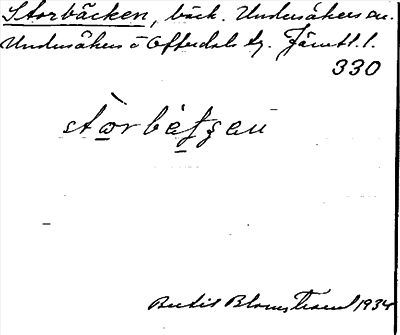 Storbäcken, bäck. Undersåkers sn.
Undersåkers o Offerdals tg. Jämtl. l.
330
Bertil Blomstrand 1934